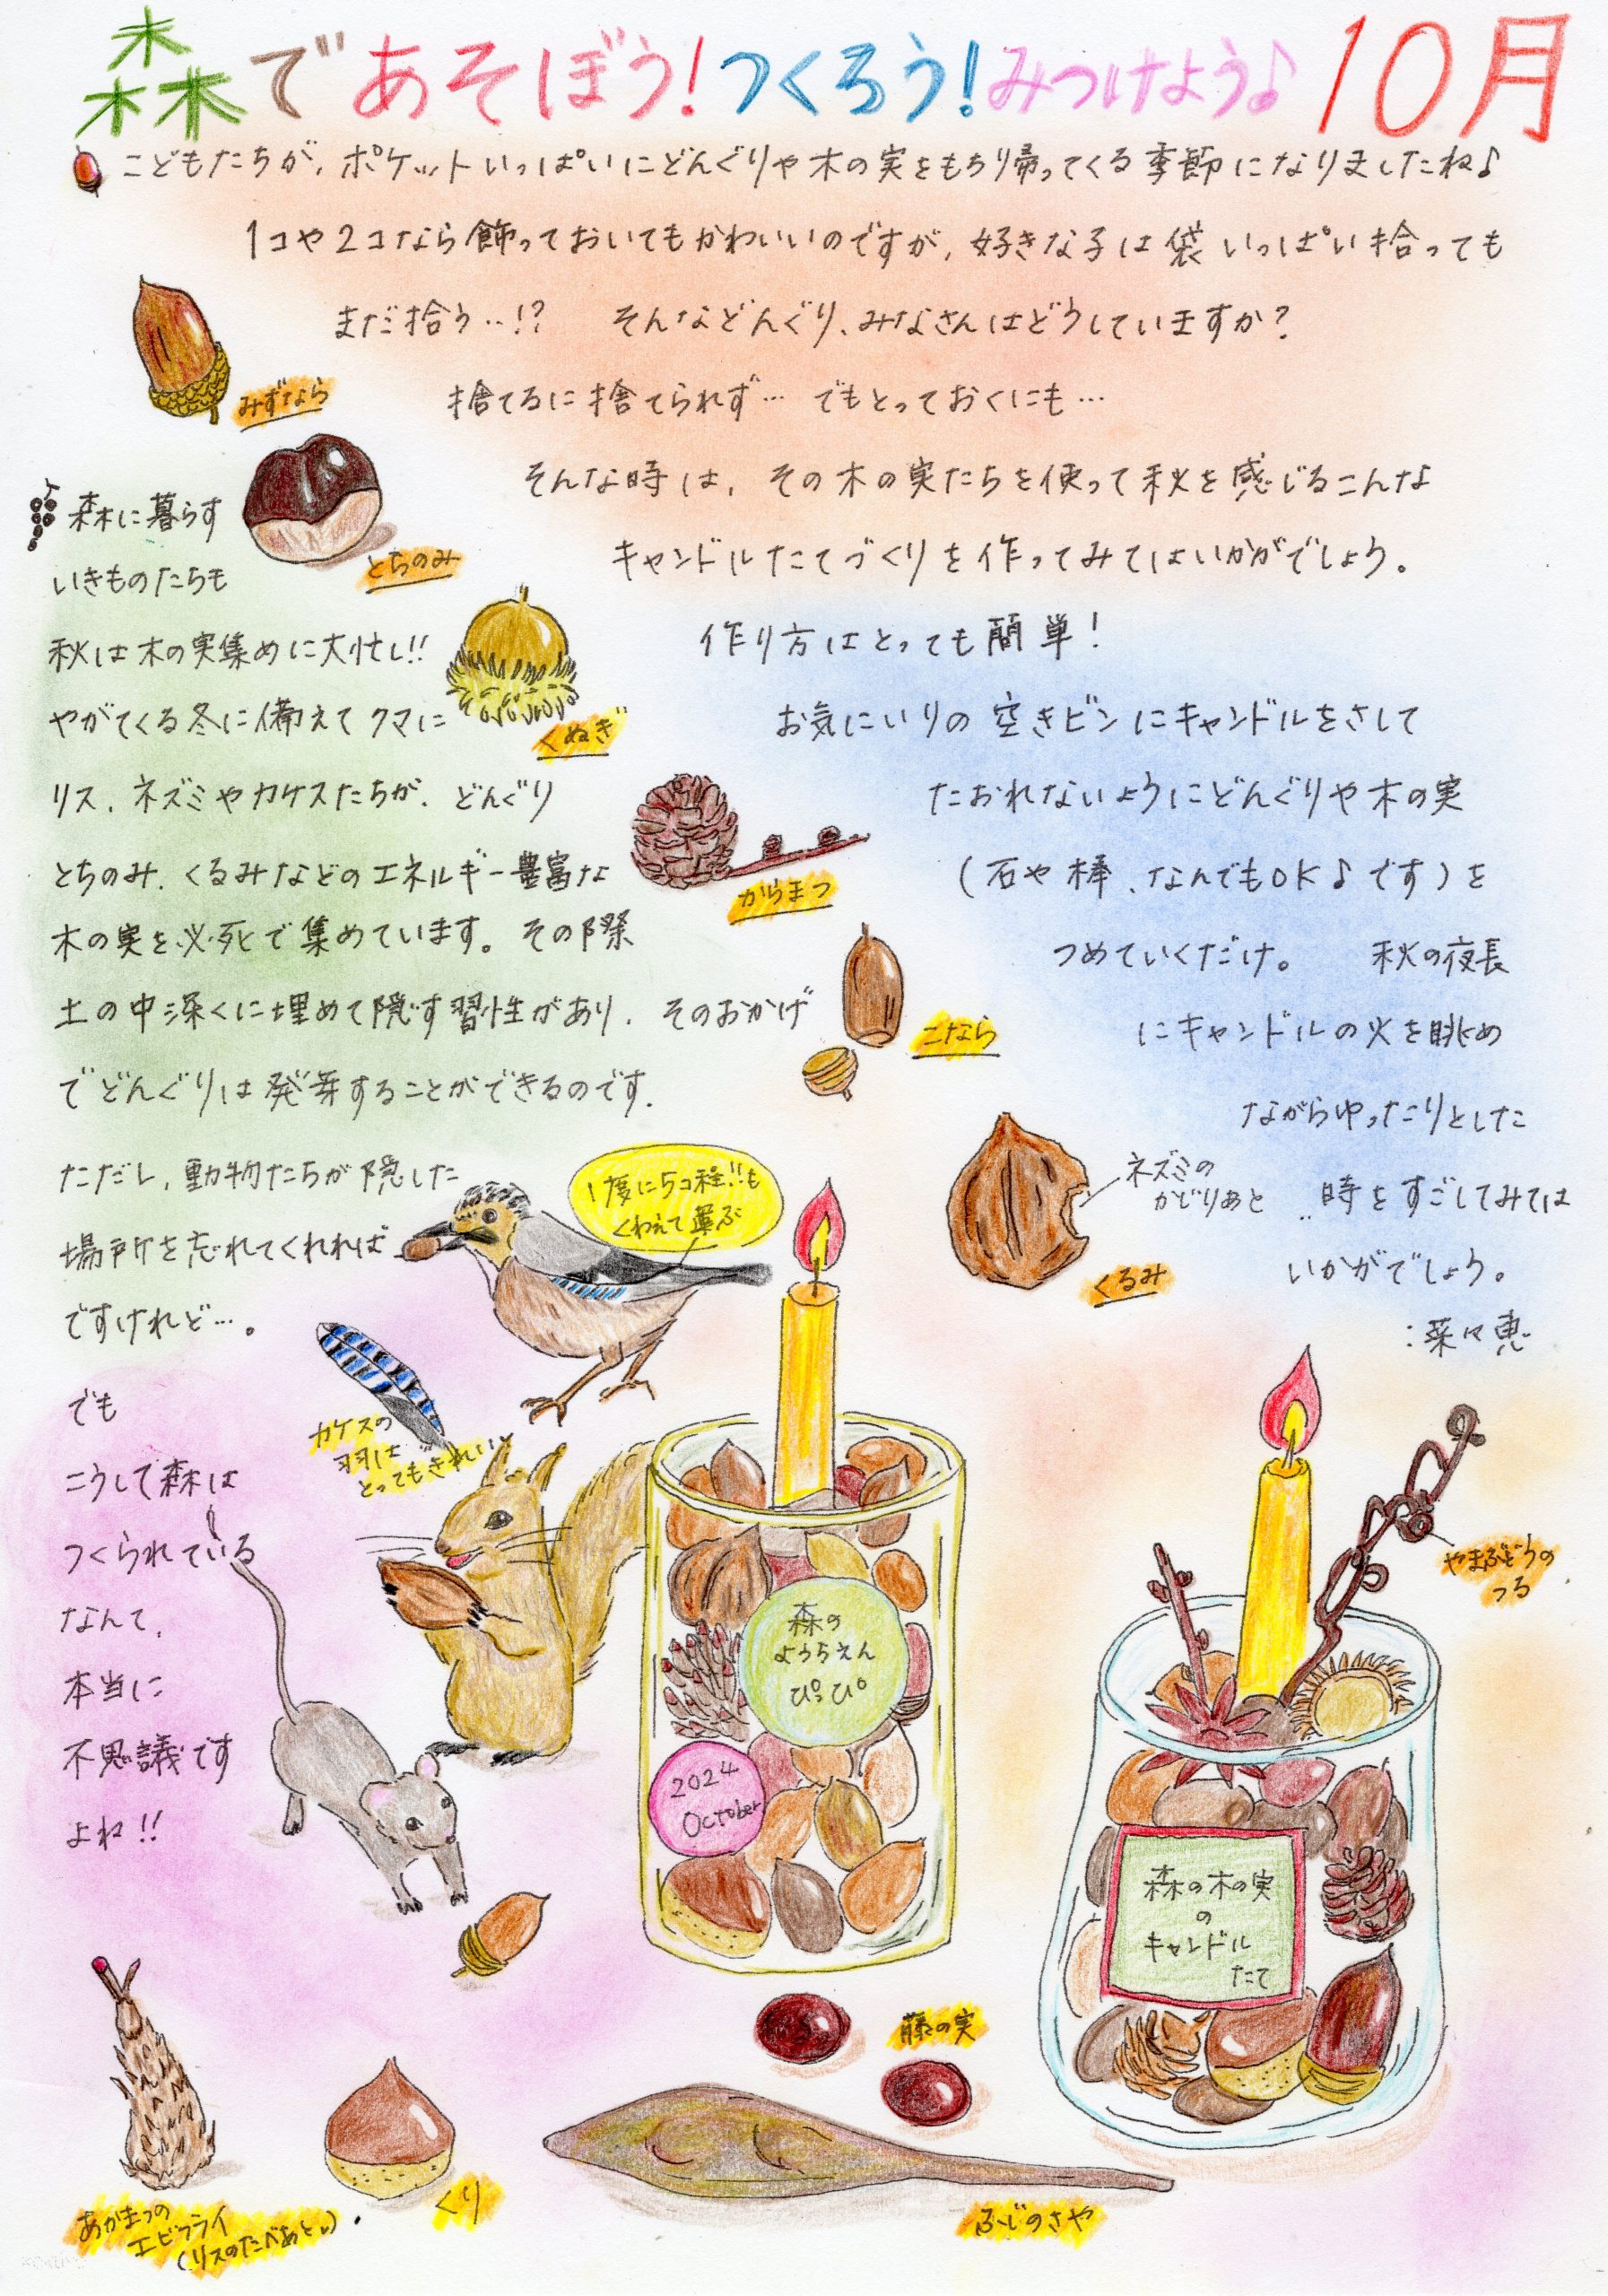 森であそぼう!つくろう!みつけよう♪ 10月
こどもたちが、ポケットいっぱいにどんぐりや木の実をもち帰ってくる季節になりましたね♪
1コや2コなら飾っておいてもかわいいのですが、好きな子は袋いっぱい拾っても
まだ拾う‥!? そんなどんぐり、みなさんはどうしていますか?
捨てるに捨てられず… でもとっておくにも…
そんな時は、その木の実たちを使って秋を感じるこんな
キャンドルたてづくりを作ってみてはいかがでしょう。
作り方はとっても簡単!
お気にいりの空きビンにキャンドルをさして
たおれないようにどんぐりや木の実
(石や棒、なんでもOK♪です)を
つめていくだけ。 秋の夜長
にキャンドルの火を眺め
ながらゆったりとした
時をすごしてみては
いかがでしょう。
:菜々恵
みずなら
とちのみ
くぬぎ
からまつ
こなら
ネズミの
かじりあと
くるみ
森に暮らす
いきものたちも
秋は木の実集めに大忙し!!
やがてくる冬に備えてクマに
リス、ネズミやカケスたちが、どんぐり
とちのみ、くるみなどのエネルギー豊富な
木の実を必死で集めています。その際
土の中深くに埋めて隠す習性があり、そのおかげ
でどんぐりは発芽することができるのです.
ただし、動物たちが隠した
場所を忘れてくれれば
ですけれど…。
1度に5コ程!!も
くわえて運ぶ
カケスの
羽は
とってもきれい
でも
こうして森は
つくられている
なんて、
本当に
不思議です
よね!!
森の
ようちえん
ぴっぴ
2024
October
やまぶどうの
つる
森の木の実
の
キャンドル
たて
藤の実
ふじのさや
くり
あかまつの
エビフライ
(リスのたべあと)